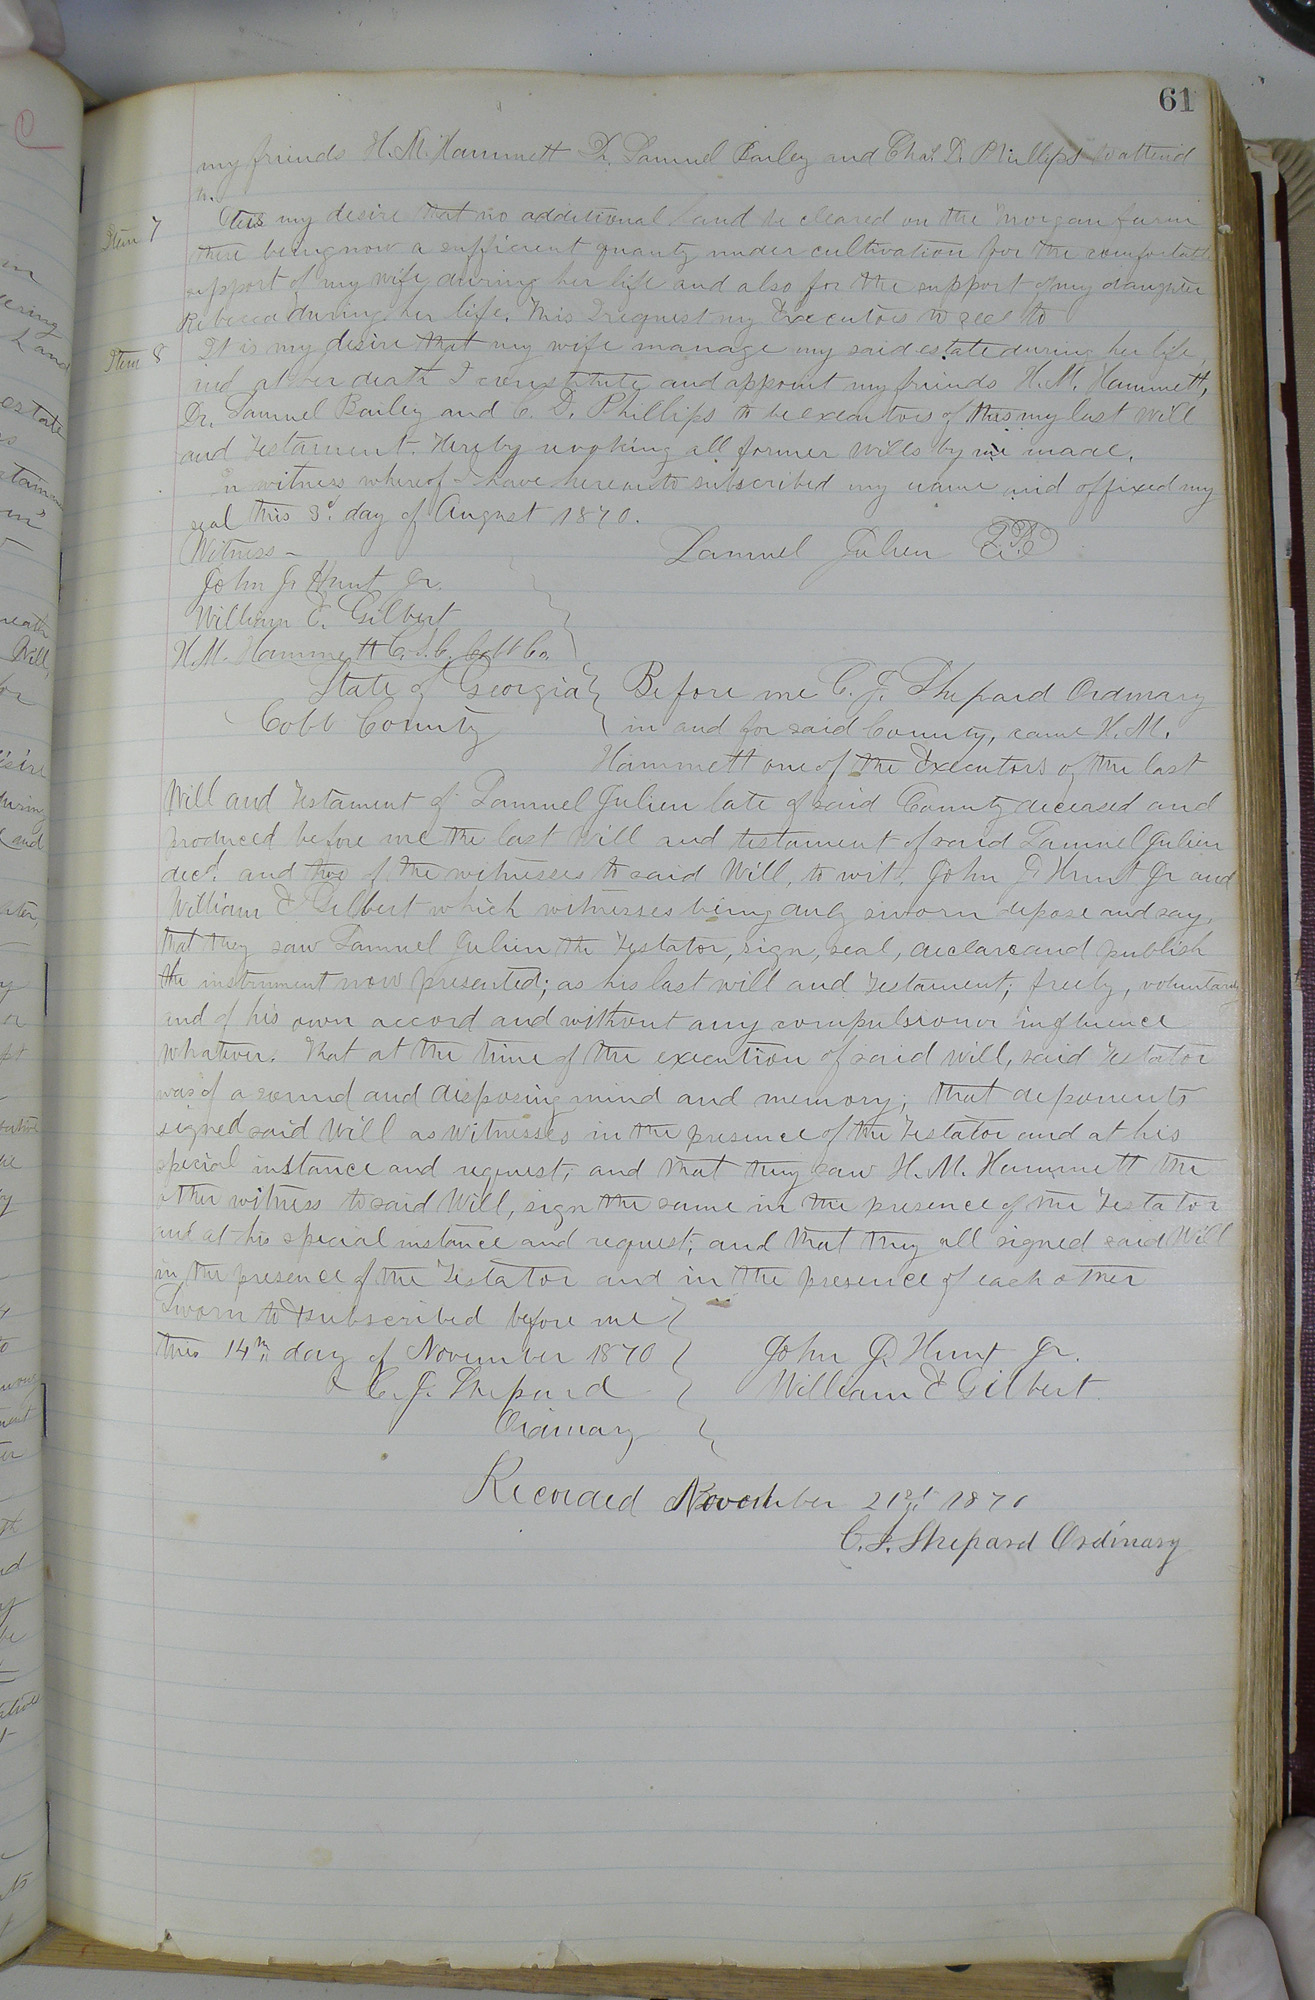 61
my friends H. M. Hammett Dr. Samuel Bailey and Chas. D. Phillips to attend
to.
Item 7 It is my desire that no additional land be cleared on the Morgan farm
there being now a sufficient quanty under cultivation for the comfortable
support of my wife during her life and also for the support of my daughter
Rebecca during her life. This I request my Executors to see to
Item 8 It is my desire that my wife manage my said estate during her life,
and at her death I constitute and appoint my friends H. M. Hammett,
Dr. Samuel Bailey and C. D. Phillips to be executors of this my last will
and Testament. Hereby revoking all former wills by me made.
In witness whereof I have hereunto subscribed my name and affixed my
seal this 3d. day of August 1870.
Witness - Samuel Julien
John J. Hunt Jr.
William E. Gilbert
H. M. Hammett C.S.C. Cobb Co.
State of Georgia Before me C. J. Shepard Ordinary
Cobb County in and for said County, came H. M.
Hammett one of the Executors of the last
Will and Testament of Samuel Julien late of said County deceased and
produced before me the last Will and testament of said Samuel Julien
decd. and two of the witnesses to said Will, to wit. John J Hunt Jr and
William E Gilbert which witnesses being duly sworn depose and say,
that they saw Samuel Julien the Testator, sign, seal, declare and publish
the instrument now presented; as his last will and Testament; freely, voluntarily
and of his own accord and without any compulsion or influence
whatever. That at the time of the execution of said will, said Testator
was of a sound and disposing mind and memory; that deponents
signed said Will as Witnesses in the presence of the Testator and at his
special instance and request; and that they saw H. M. Hammett the
other witness to said Will, sign the same in the presence of the Testator
and at his special instance and request; and that they all signed said Will
in the presence of the Testator and in the presence of each other
Sworn to & subscribed before me
this 14th day of November 1870 John J. Hunt Jr.
C. J. Shepard William E Gilbert.
Ordinary
Recorded November 21st 1870
C. J. Shepard Ordinary